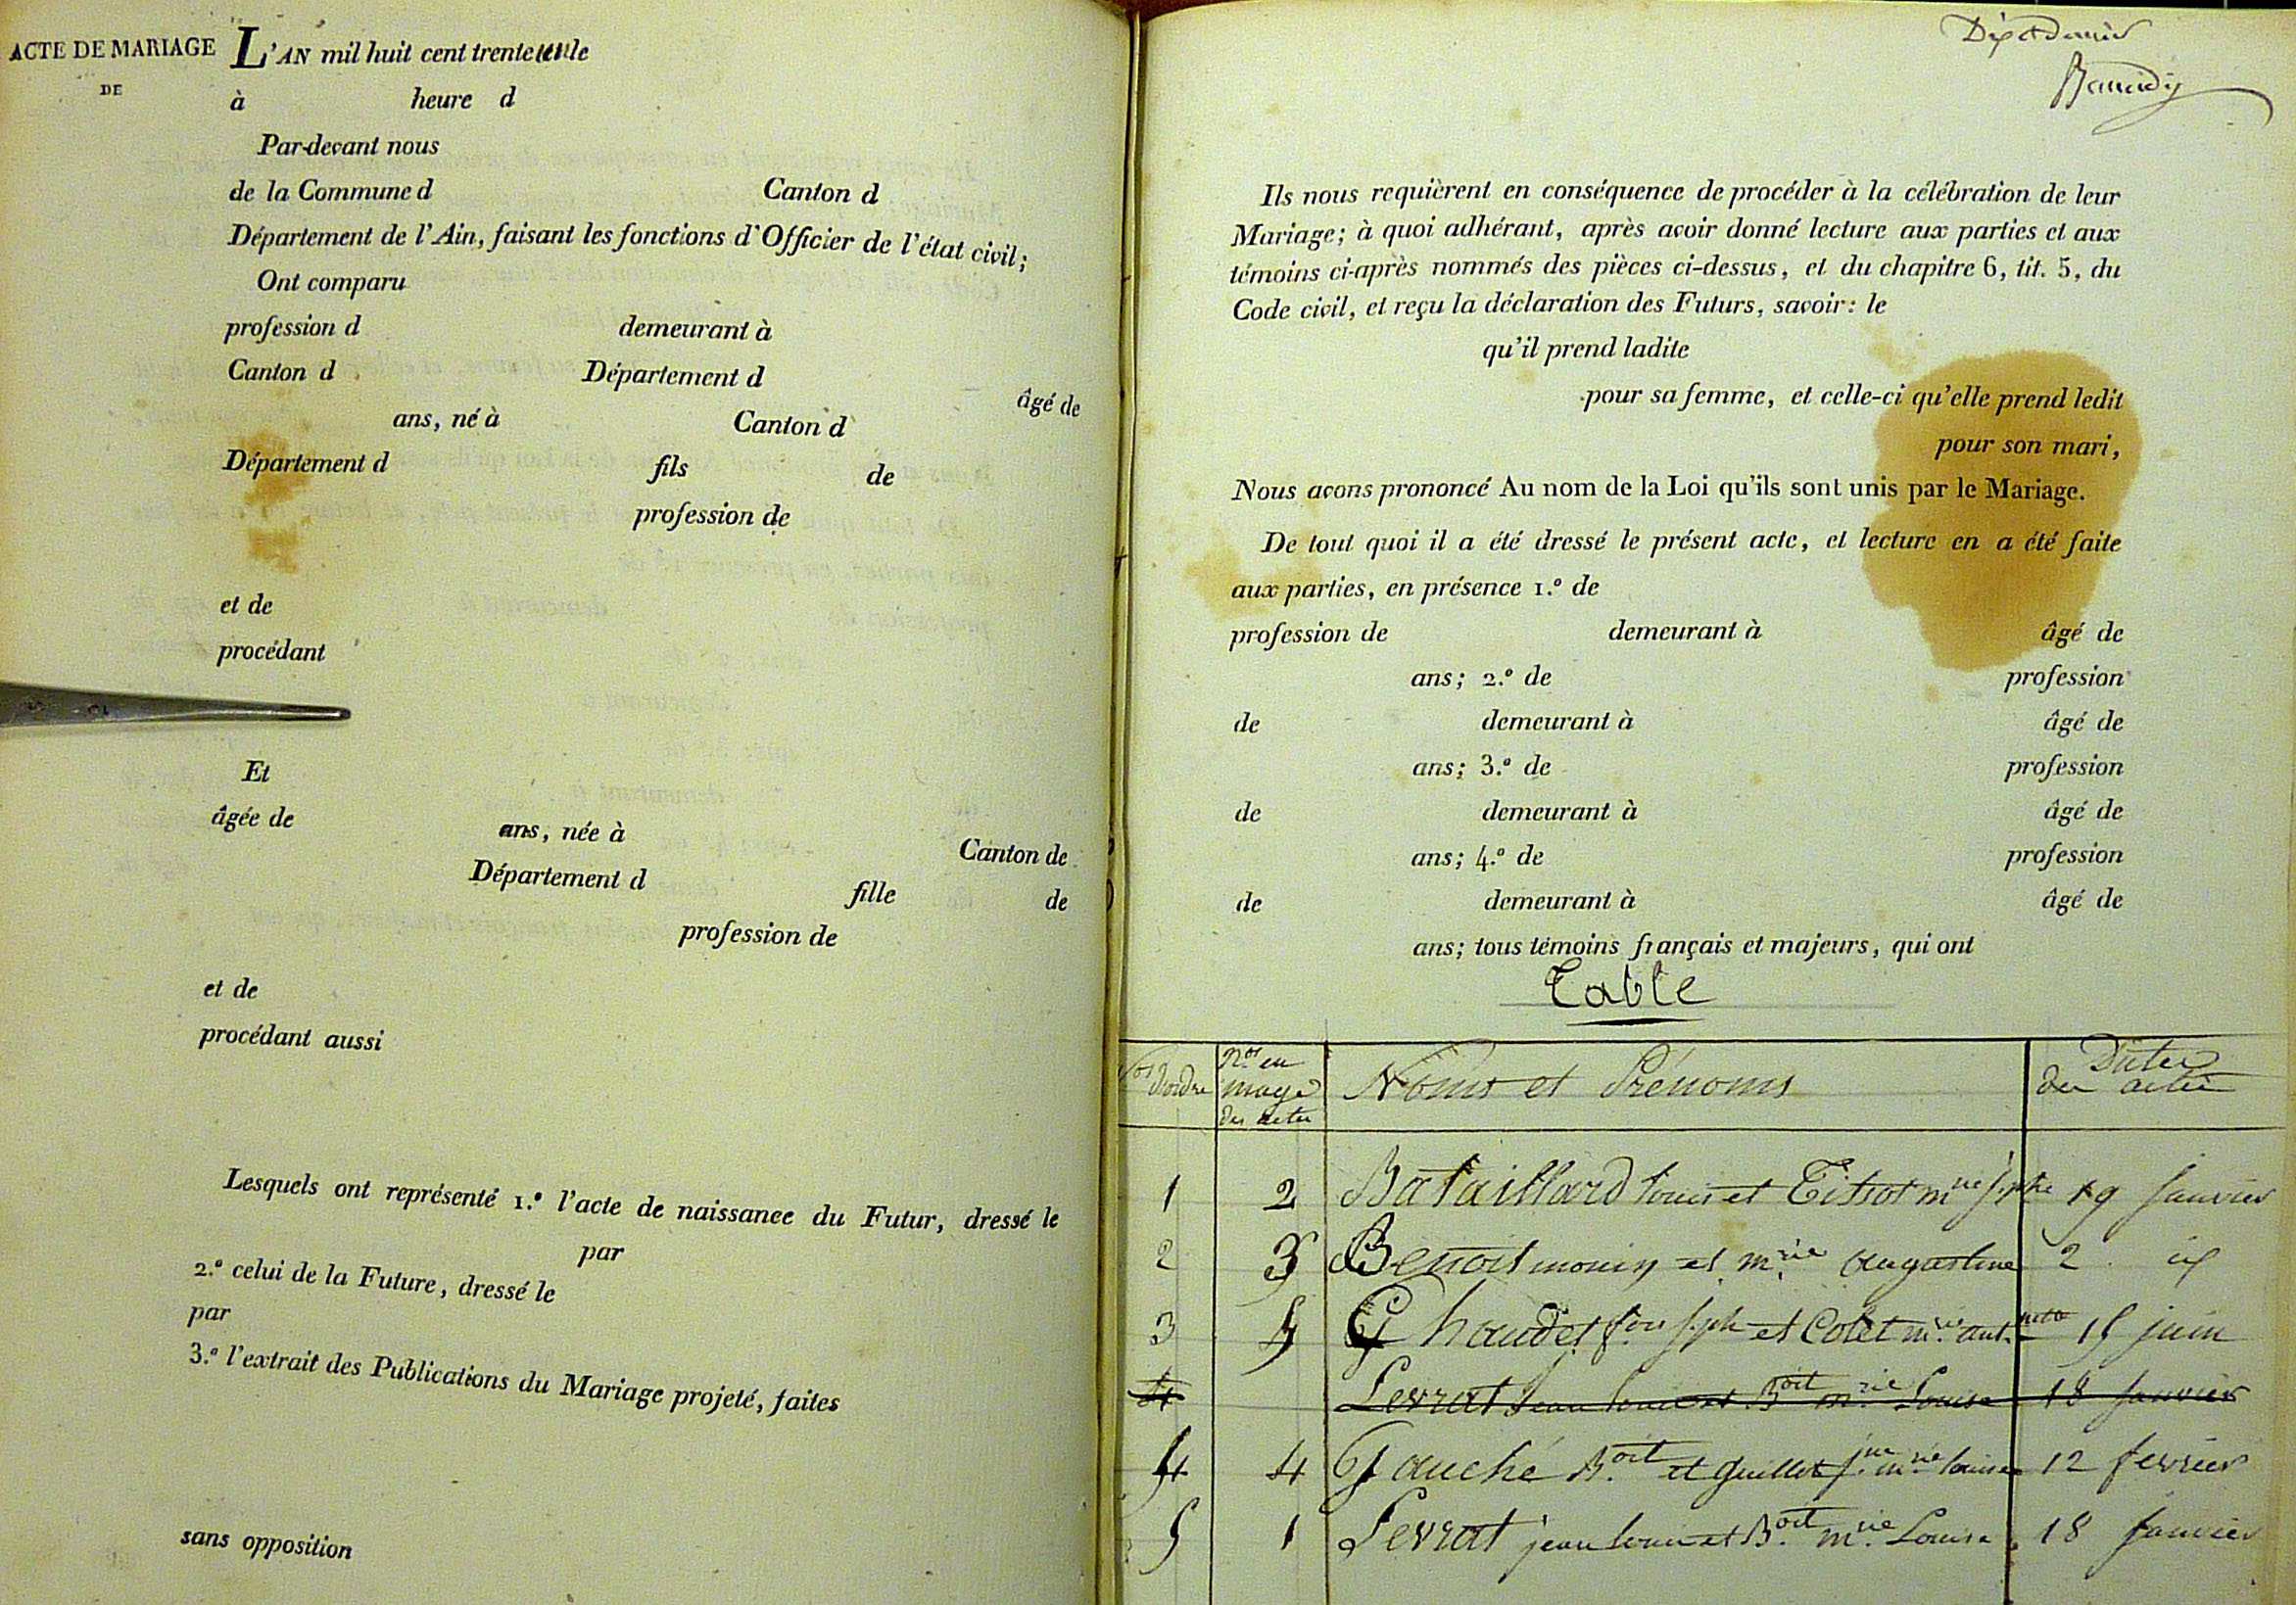 ACTE DE MARIAGE
DE
L'AN mil huit cent trente le
à heure d
Par-devant nous
de la Commune d Canton d
Département de l'Ain, faisant les fonctions d'Officier de l'état civil;
Ont comparu
profession d demeurant à
Canton d Département d âgé de
ans, né à Canton d
Département d fils de
profession de
et de
procédant
Et
âgée de ans, née à Canton de
Département d fille de
profession de
et de
procédant aussi
Lesquels ont représenté 1.º l'acte de naissance du Futur, dressé le
par
2.º celui de la Future, dressé le
par
3.º l'extrait des Publications du Mariage projeté, faites
sans opposition
Ils nous requièrent en conséquence de procéder à la célébration de leur
Mariage; à quoi adhérant, après avoir donné lecture aux parties et aux
témoins ci-après nommés des pièces ci-dessus, et du chapitre 6, tit. 5, du
Code civil, et reçu la déclaration des Futurs, savoir: le
qu'il prend ladite
pour sa femme, et celle-ci qu'elle prend ledit
pour son mari,
Nous avons prononcé Au nom de la Loi qu'ils sont unis par le Mariage.
De tout quoi il a été dressé le présent acte, et lecture en a été faite
aux parties, en présence 1.º de
profession de demeurant à âgé de
ans; 2.º de profession
de demeurant à âgé de
ans; 3.º de profession
de demeurant à âgé de
ans; 4.º de profession
de demeurant à âgé de
ans; tous témoins français et majeurs, qui ont
Table
Nos d'ordre Nos en marge des actes Noms et Prénoms Dates des actes
1 2 Bataillard louis et Tissot mie jsphe 19 janvier
2 3 Benoit et m.rie augastine 2 id
3 5 Chaudet f.ois jsph et Colet m.rie ant.nette 15 juin
4 Levrat Jean louis et B.oit m.rie Louise 18 Janvier
4 4 Gauché B.oit et Guillot j.ne m.rie louise 12 fevrier
5 1 Levrat jean louis et B.oit m.rie Louise 18 Janvier